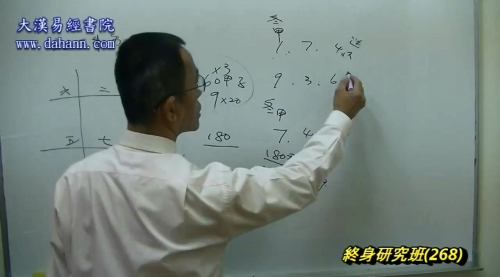 大漢易經書院
www.dahann.com
冬
甲
1. 7. 4
×3
×3
60甲子
9×20
9. 3. 6
六 二
五 七
180
甲
7. 4
180
終身研究班(268)